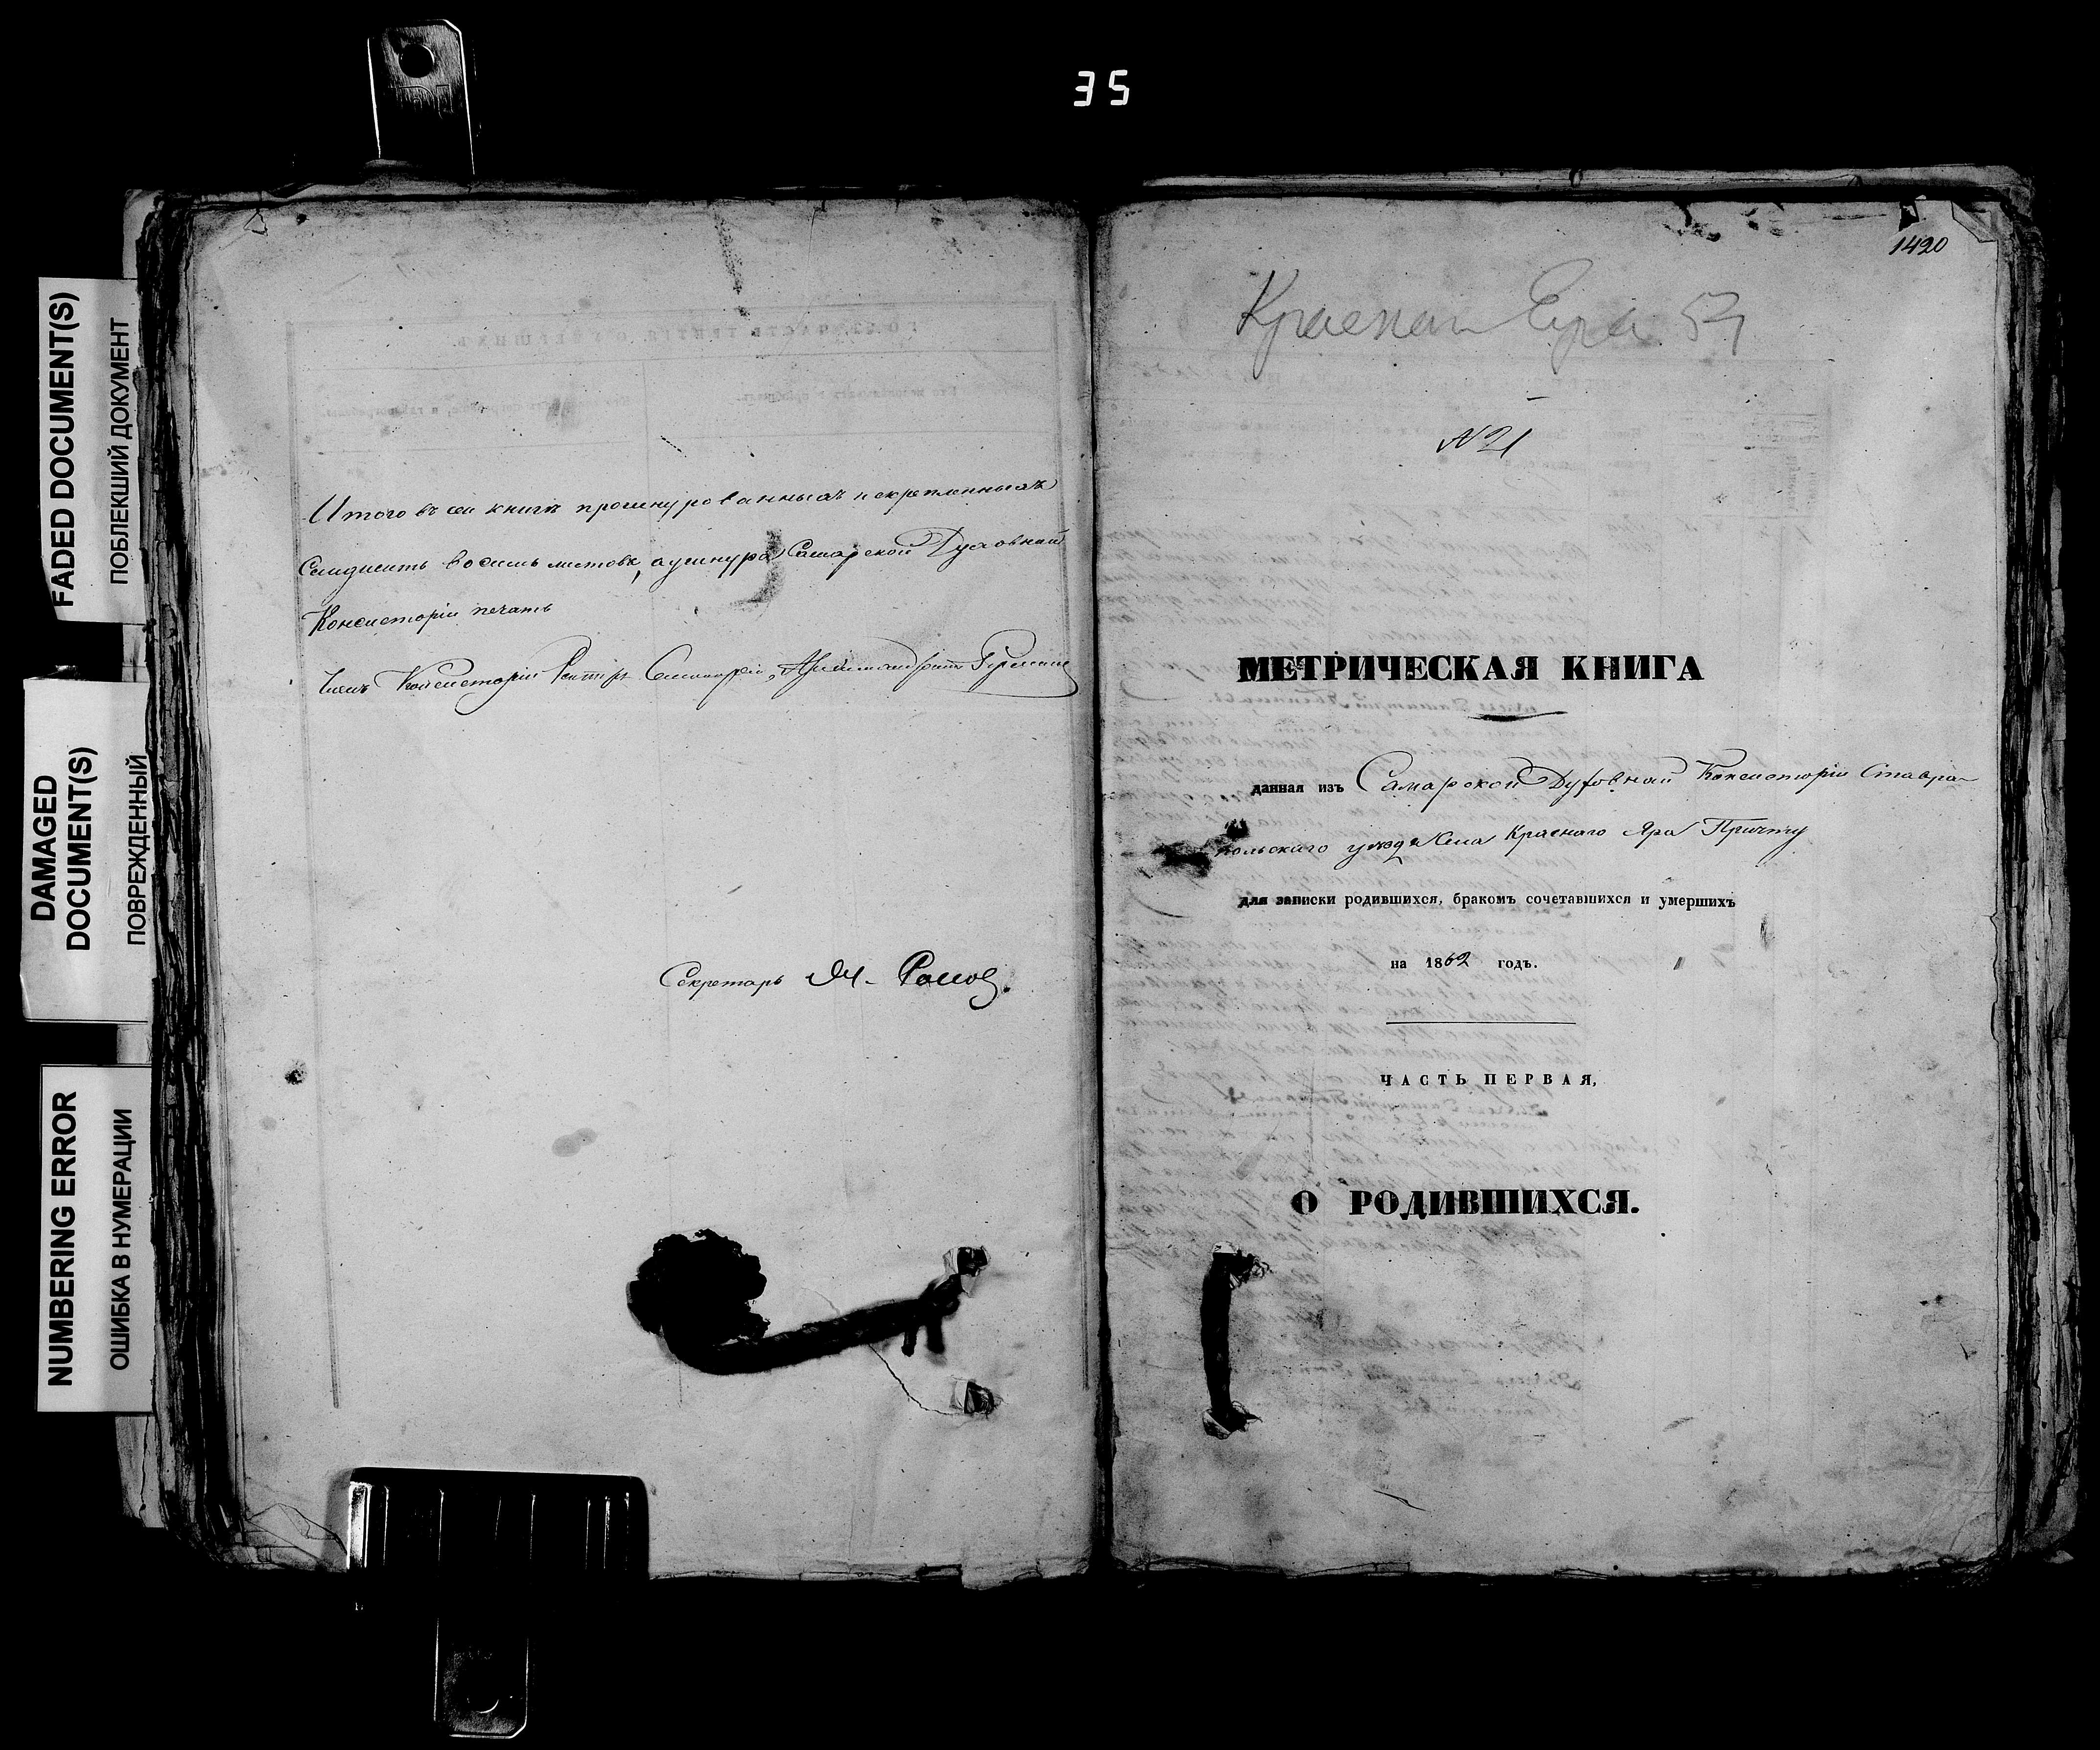 35
FADED DOCUMENT(S)
ПОБЛЕКШИЙ ДОКУМЕНТ
DAMAGED
DOCUMENT(S)
ПОВРЕЖДЕННЫЙ
NUMBERING ERROR
ОШИБКА В НУМЕРАЦИИ
Итого въ сей книгѣ прошнурованныхъ и скрепленныхъ
восимь листовъ, а у шнура Самарской Духовной
Консисторіи печать
Членъ Консисторіи Ректоръ Семинаріи, Архимандритъ
Секретарь
1420
Красная 51
N 21
МЕТРИЧЕСКАЯ КНИГА
данная изъ Самарской Духовной Консисторіи Ставро-
польскаго уѣзда Села Краснаго Яра Причту
для записки родившихся, бракомъ сочетавшихся и умершихъ
на 1862 годъ.
ЧАСТЬ ПЕРВАЯ,
О РОДИВШИХСЯ.